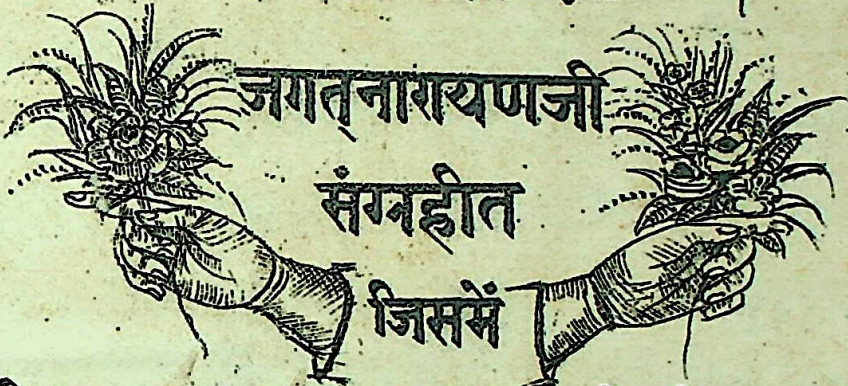 जगत्नारायणजी
संग्रहीत
जिसमें